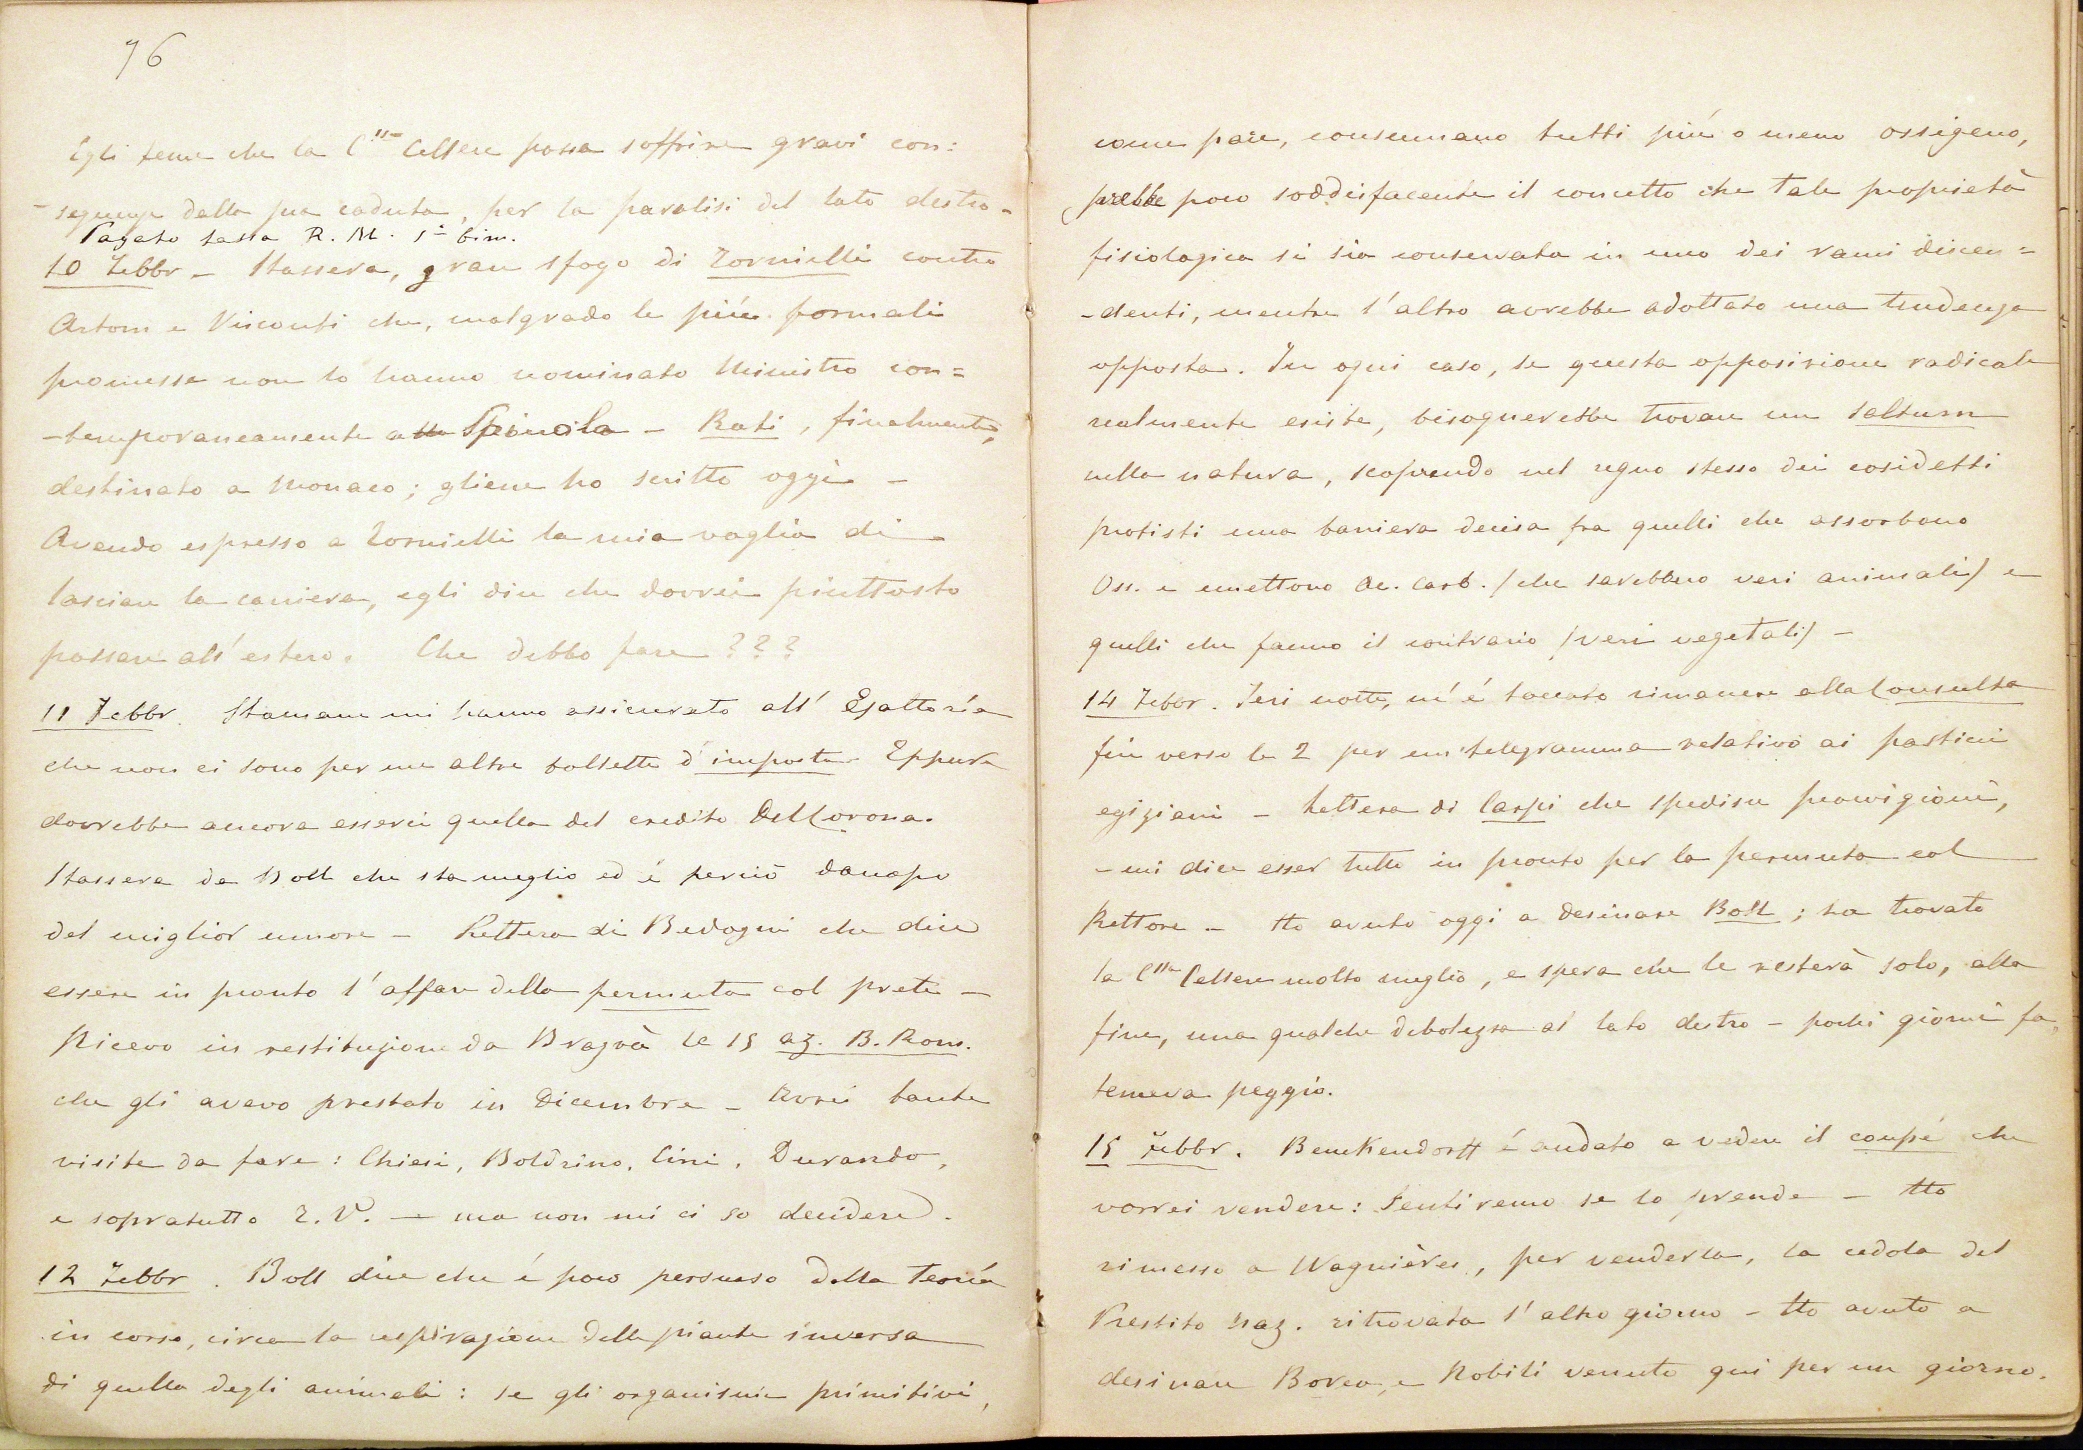 76
Egli teme che la C.ssa Cellere possa soffrire gravi con=
-seguenze dalla sua caduta, per la paralisi del lato destro -
Pagato tassa R. M. 1º bim.
10 Febbr - Stassera, gran sfogo di Tornielli contro
Artom e Visconti che, malgrado le più formali
promesse non lo hanno nominato Ministro con=
-temporaneamente a Spinola - Rati, finalmente,
destinato a Monaco; gliene ho scritto oggi -
Avendo espresso a Tornielli la mia voglia di
lasciare la carriera, egli dice che dovrei piuttosto
passare all'estero. Che debbo fare ???
11 Febbr. Stamane mi hanno assicurato all'Esattoria
che non ci sono per me altre bollette d'imposte. Eppure
dovrebbe ancora esserci quella del credito Del Corona.
Stassera da Boll che sta meglio ed è perciò daccapo
del miglior umore - Lettera di Bedogni che dice
essere in pronto l'affare della permuta col prete -
Ricevo in restituzione da Bragrà le 15 az. B. Rom.
che gli avevo prestato in Dicembre - Avrei tante
visite da fare: Chiesi, Boldrino, Cini, Durando,
e sopratutto E. V. - ma non mi ci so decidere.
12 Febbr. Boll dice che è poco persuaso della teoria
in corso, circa la respirazione delle piante inversa
di quella degli animali: se gli organismi primitivi,
come pare, consumano tutti più o meno ossigeno,
sarebbe poco soddisfacente il concetto che tale proprietà
fisiologica si sia conservata in uno dei rami discen=
-denti, mentre l'altro avrebbe adottato una tendenza
opposta. In ogni caso, se questa opposizione radicale
realmente esiste, bisognerebbe trovare un saltum
nella natura, scoprendo nel regno stesso dei cosidetti
protisti una barriera decisa fra quelli che assorbono
Oss. e emettono Ac. Carb. (che sarebbero veri animali) e
quelli che fanno il contrario (veri vegetali) -
14 Febbr. Ieri notte, m'è toccato rimanere alla Consulta
fin verso le 2 per un telegramma relativo ai pasticci
egiziani - Lettera di Carpi che spedisce provvigioni,
- mi dice esser tutto in pronto per la permuta col
Rettore - Ho avuto oggi a desinare Boll; ha trovato
la C.ssa Cellere molto meglio, e spera che le resterà solo, alla
fine, una qualche debolezza al lato destro - pochi giorni fa,
temeva peggio.
15 Febbr. Benckendorff è andato a vedere il coupé che
vorrei vendere: sentiremo se lo prende - Ho
rimesso a Wagnières, per venderla, la cedola del
Prestito Naz. ritrovata l'altro giorno - Ho avuto a
desinare Borea, e Nobili venuto qui per un giorno.